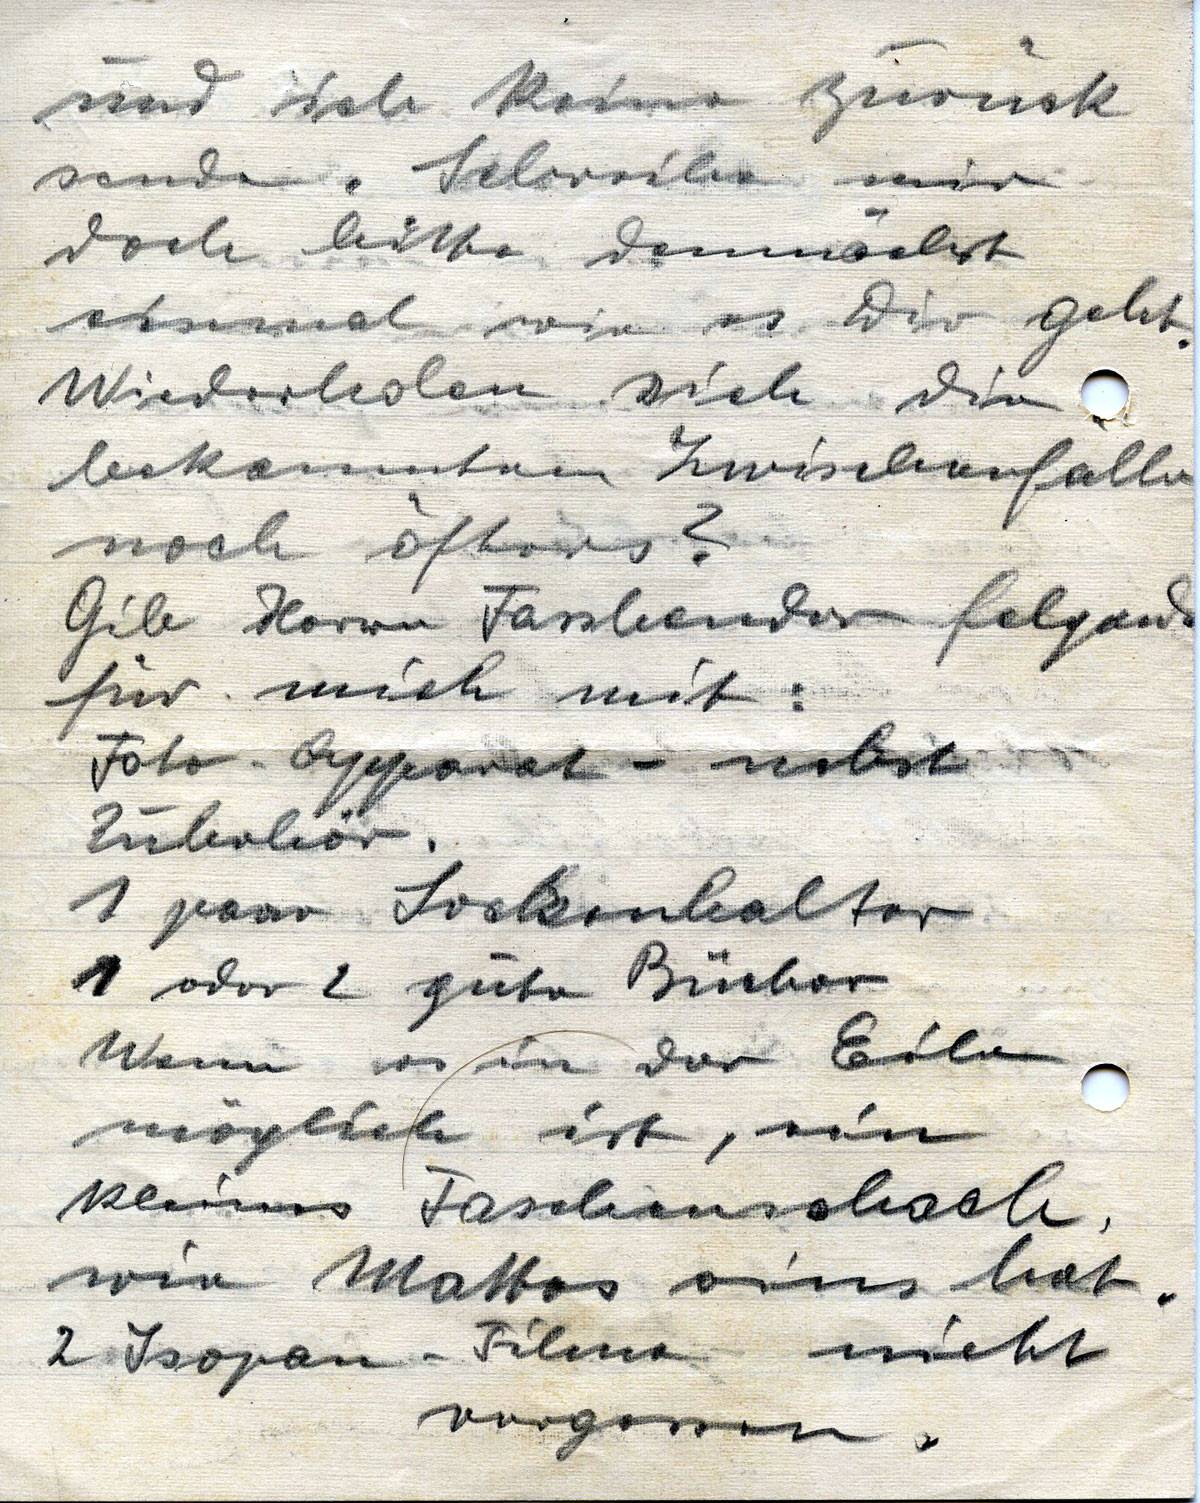 und ich keine zurück
sende. Schreibe mir
doch bitte demnächst
einmal wie es Dir geht.
Wiederholen sich die
bekannten Zwischenfälle
noch öfters?
Gib Herrn Fassbender folgend
für mich mit:
Foto-Apparat - nebst
Zubehör.
1 paar Sockenhalter
1 oder 2 gute Bücher
Wenn es in der Eile
möglich ist, ein
kleines Taschenschach,
wie Mattes eins hat.
2 Isopan-Filme nicht
vergessen.